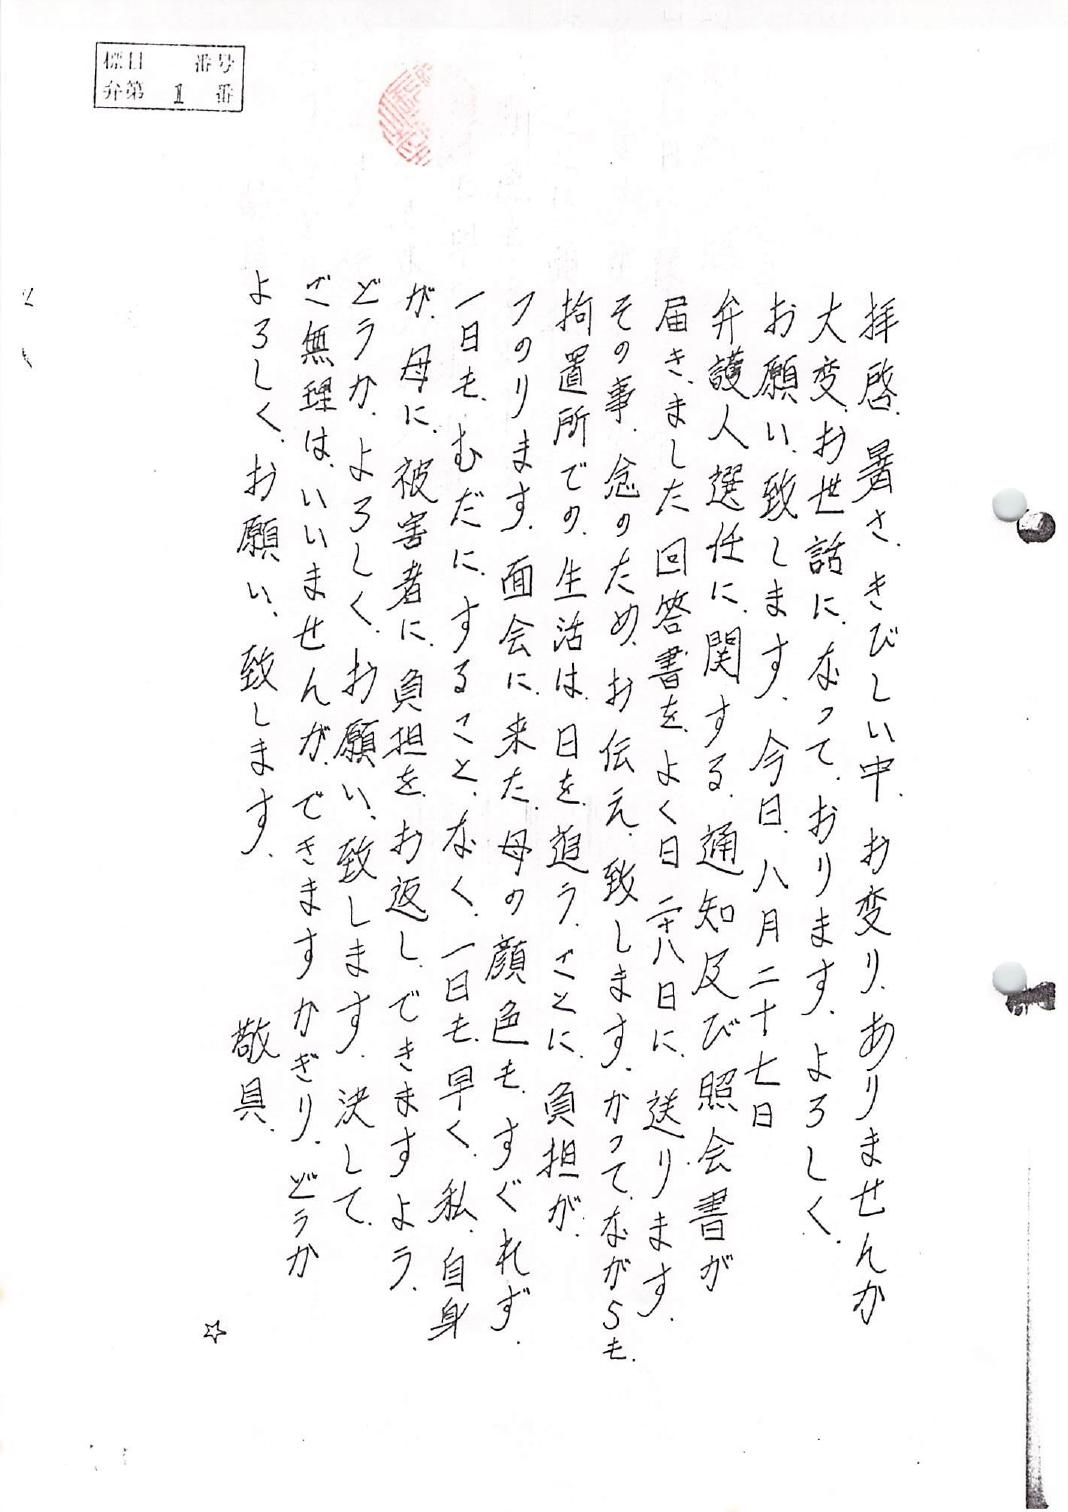 標目　番号
弁第 1 番
拝啓、暑さ、きびしい中、お変り、ありませんか
大変、お世話に、なって、おります、よろしく、
お願い、致します、今日、八月二十七日
弁護人選任に、関する、通知及び照会書が
届き、ました、回答書を、よく日、二十八日に、送ります、
その事、念のため、お伝え、致します、かって、ながらも、
拘置所での、生活は、日を、追う、ごとに、負担が、
つのります、面会に、来た、母の顔色も、すぐれず、
一日も、むだに、すること、なく、一日も、早く、私、自身
が、母に、被害者に、負担を、お返し、できますよう、
どうか、よろしく、お願い、致します、決して、
ご無理は、いいませんが、できますかぎり、どうか
よろしく、お願い、致します、
敬具、
☆